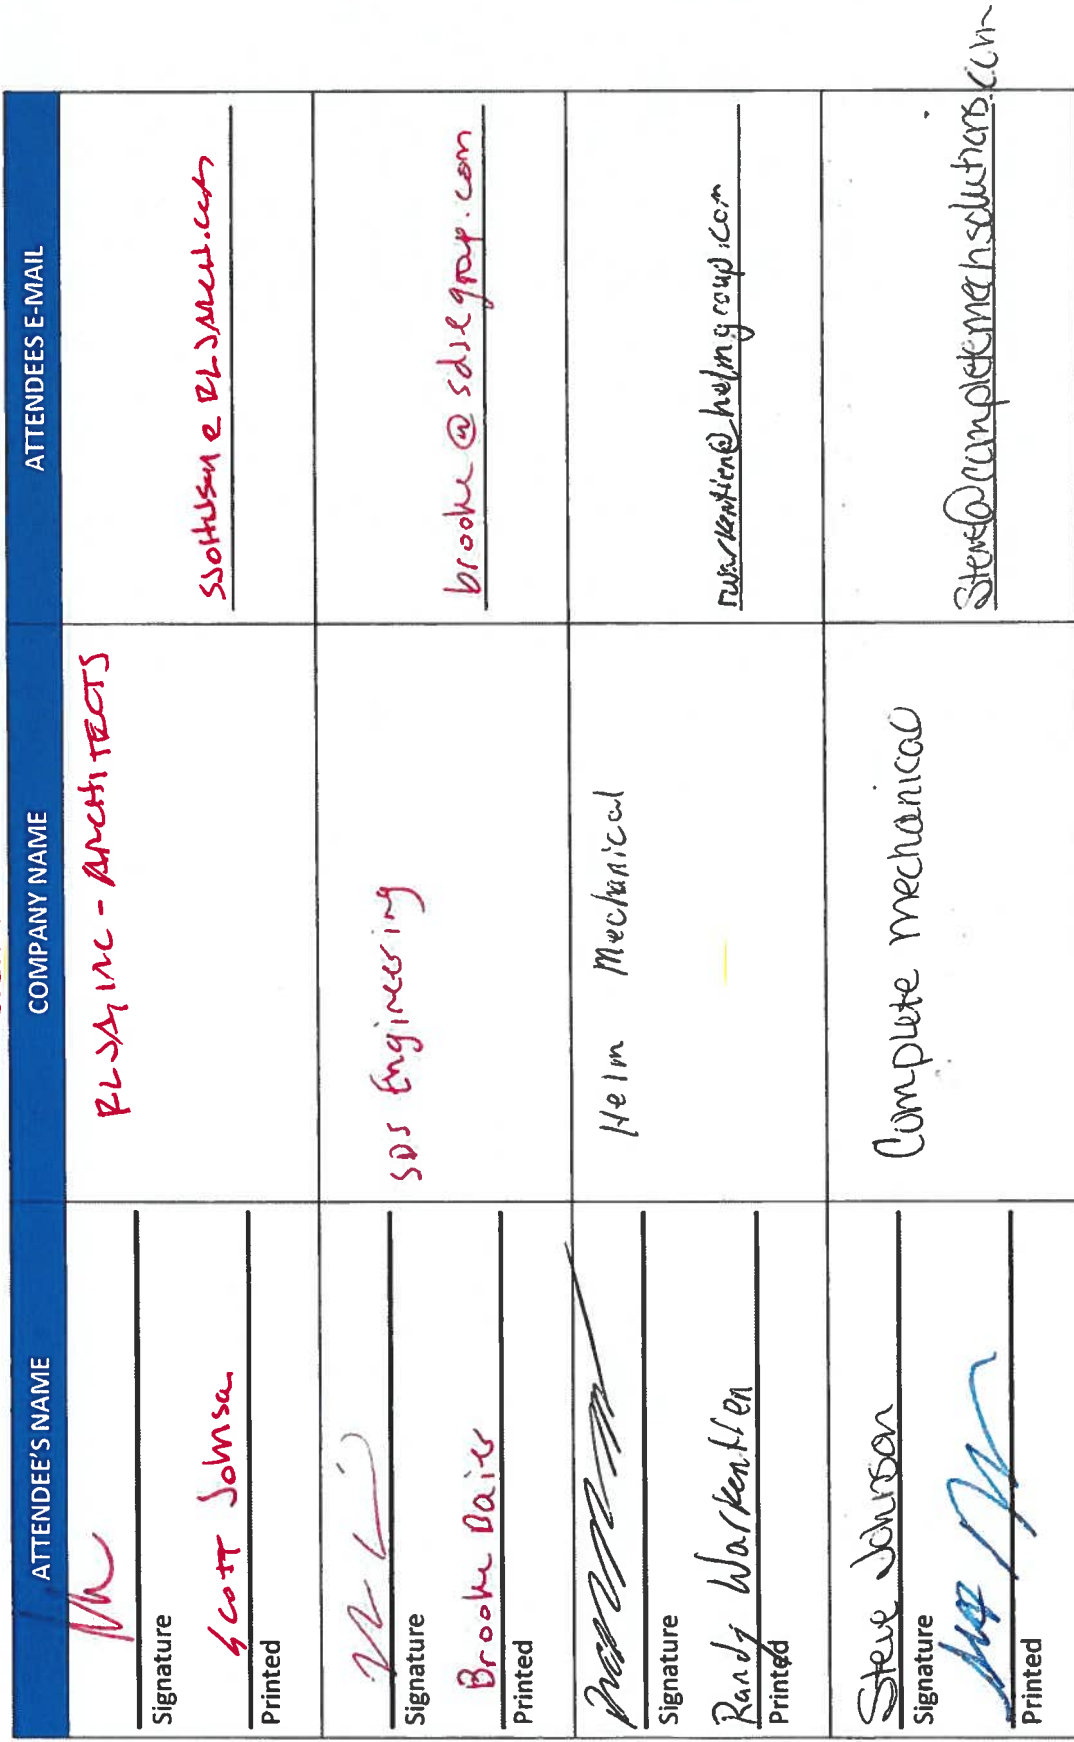 ATTENDEE'S NAME COMPANY NAME ATTENDEES E-MAIL
Signature
Scott Johnson
Printed
RLJA, INC - ARCHITECTS
Signature
Brooke
Printed
SDS Engineering
brooke@sdsegroup.com
Signature
Randy Warkentien
Printed
Helm Mechanical
rwarkentien@helmgroup.com
Steve Johnson
Signature
Printed
Complete Mechanical
Steve@completemechsolutions.com